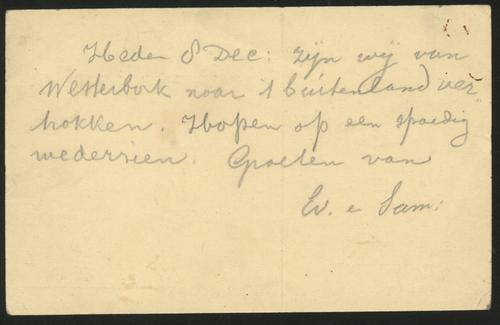 Heden 8 Dec: zijn wij van
Westerbork naar 't buitenland ver
trokken. Hopen op een spoedig
wederzien. Groeten van
Ev. e Sam: